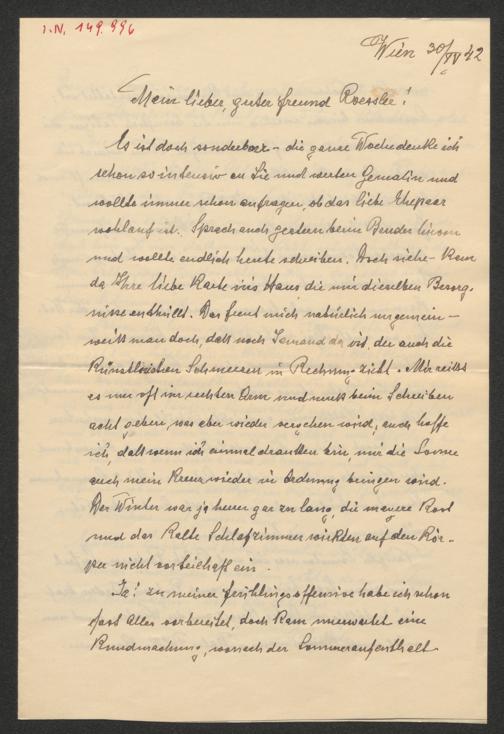 I.N. 149.996
Wien 30/IV 42
Mein lieber, guter Freund Roessler!
Es ist doch sonderbar – die ganze Woche denke ich
schon so intensiv an Sie und werten Gemalin und
wollte immer schon anfragen, ob das liebe Ehepaar
wohlauf ist. Sprach auch gestern beim Bender hievon
und wollte endlich heute schreiben. Doch siehe – kam
da Ihre liebe Karte ins Haus, die mir dieselben Besorg-
nisse enthüllt. Das freut mich natürlich ungemein –
weiß man doch, daß noch Jemand da ist, der auch die
Künstlrischen Schmerzen in Rechnung zieht. Mir reißt
es nur oft im rechten Arm und muß beim Schreiben
acht geben, was aber wieder vergehen wird; auch hoffe
ich, daß wenn ich einmal draußen bin, mir die Sonne
auch mein Kreuz wieder in Ordnung bringen wird.
Der Winter war ja heuer gar zu lang, die magere Kost
und das Kalte Schlafzimmer wirkten auf den Kör-
per nicht vorteilhaft ein.
Ja! zu meiner Frühlingsoffensive habe ich schon
fast Alles vorbereitet, doch kam unerwartet eine
Kundmachung, wonach der Sommeraufenthalt